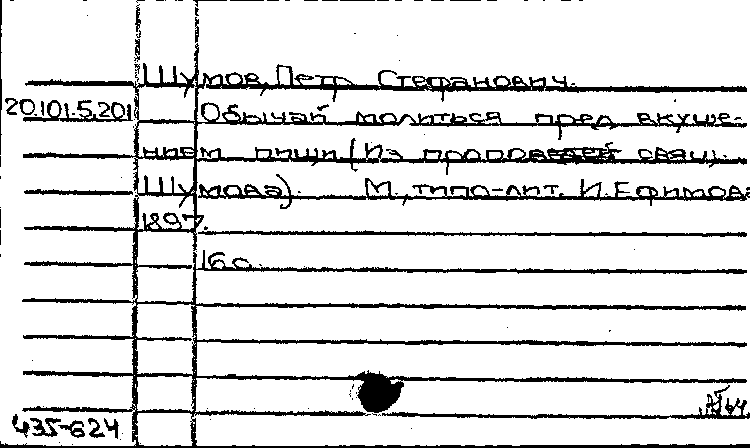 Шумов, Петр Стефанович.
20.101.5.201 Обычай молиться пред вкуше-
нием пищи (Из проповедей свящ.
Шумова). М., типо-лит. И. Ефимова
1897.
16 с.
435-624